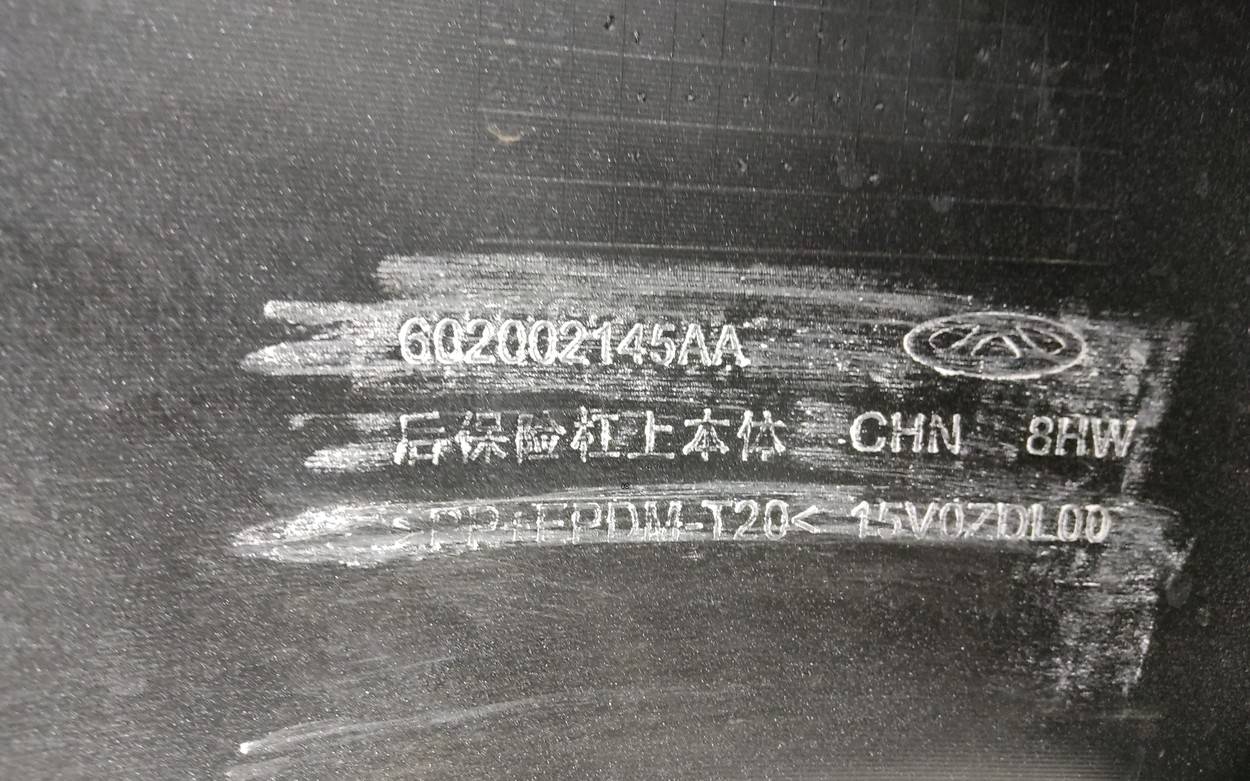 602002145AA
后保险杠上本体 CHN 8HW
>PP+EPDM-T20< 15V07DL00